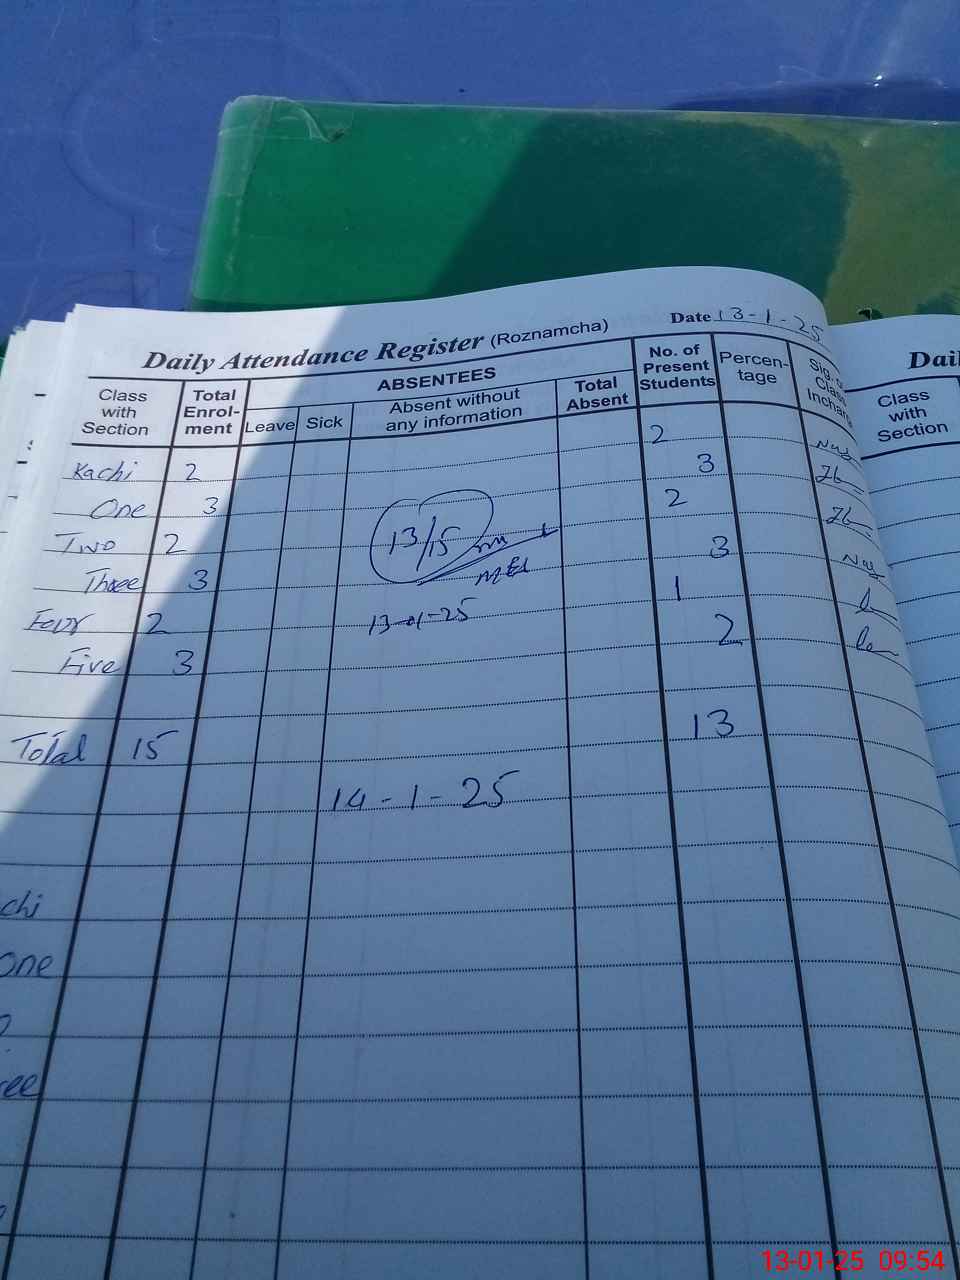 Daily Attendance Register (Roznamcha) Date 13-1-25
Class with Section
Total Enrol-ment
ABSENTEES
Leave
Sick
Absent without any information
Total Absent
No. of Present Students
Percen-tage
Sig. Class Inchar
Kachi 2 2
One 3 3
Two 2 2
Three 3 3
Four 2 1
Five 3 2
13/15
13-01-25
Total 15 13
14-1-25
chi
One
ree
Dai
Class with Section
13-01-25 09:54